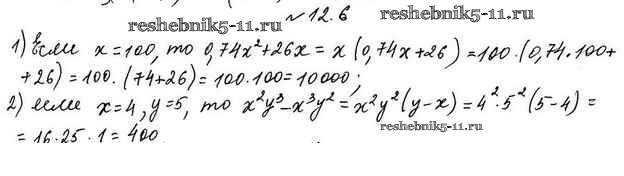 reshebnik5-11.ru
№12.6
reshebnik5-11.ru
1) Если x=100, то 0,74x²+26x = x(0,74x+26) = 100·(0,74·100+
+26) = 100·(74+26) = 100·100 = 10000;
2) если x=4, y=5, то x²y³-x³y² = x²y²(y-x) = 4²·5²(5-4) =
= 16·25·1 = 400
reshebnik5-11.ru
reshebnik5-11.ru